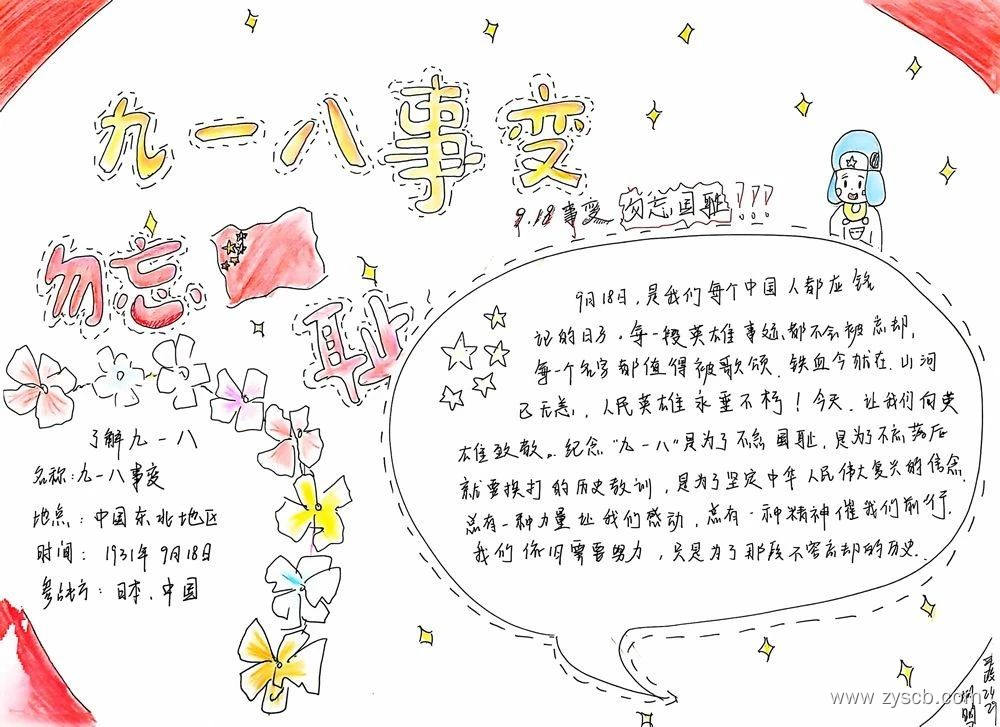 九一八事变
勿忘
耻
9.18事变 勿忘国耻！！！
9月18日，是我们每个中国人都应铭
记的日子。每一段英雄事迹都不会被忘却，
每一个名字都值得被歌颂，铁血今犹在，山河
已无恙，人民英雄永垂不朽！今天，让我们向英
雄致敬。纪念“九一八”是为了不忘国耻，是为了不忘落后
就要挨打的历史教训，是为了坚定中华人民伟大复兴的信念
总有一种力量让我们感动，总有一种精神催我们前行
我们依旧需要努力，只是为了那段不容忘却的历史
了解九一八
名称：九一八事变
地点：中国东北地区
时间：1931年9月18日
参战方：日本、中国
www.zyscb.com